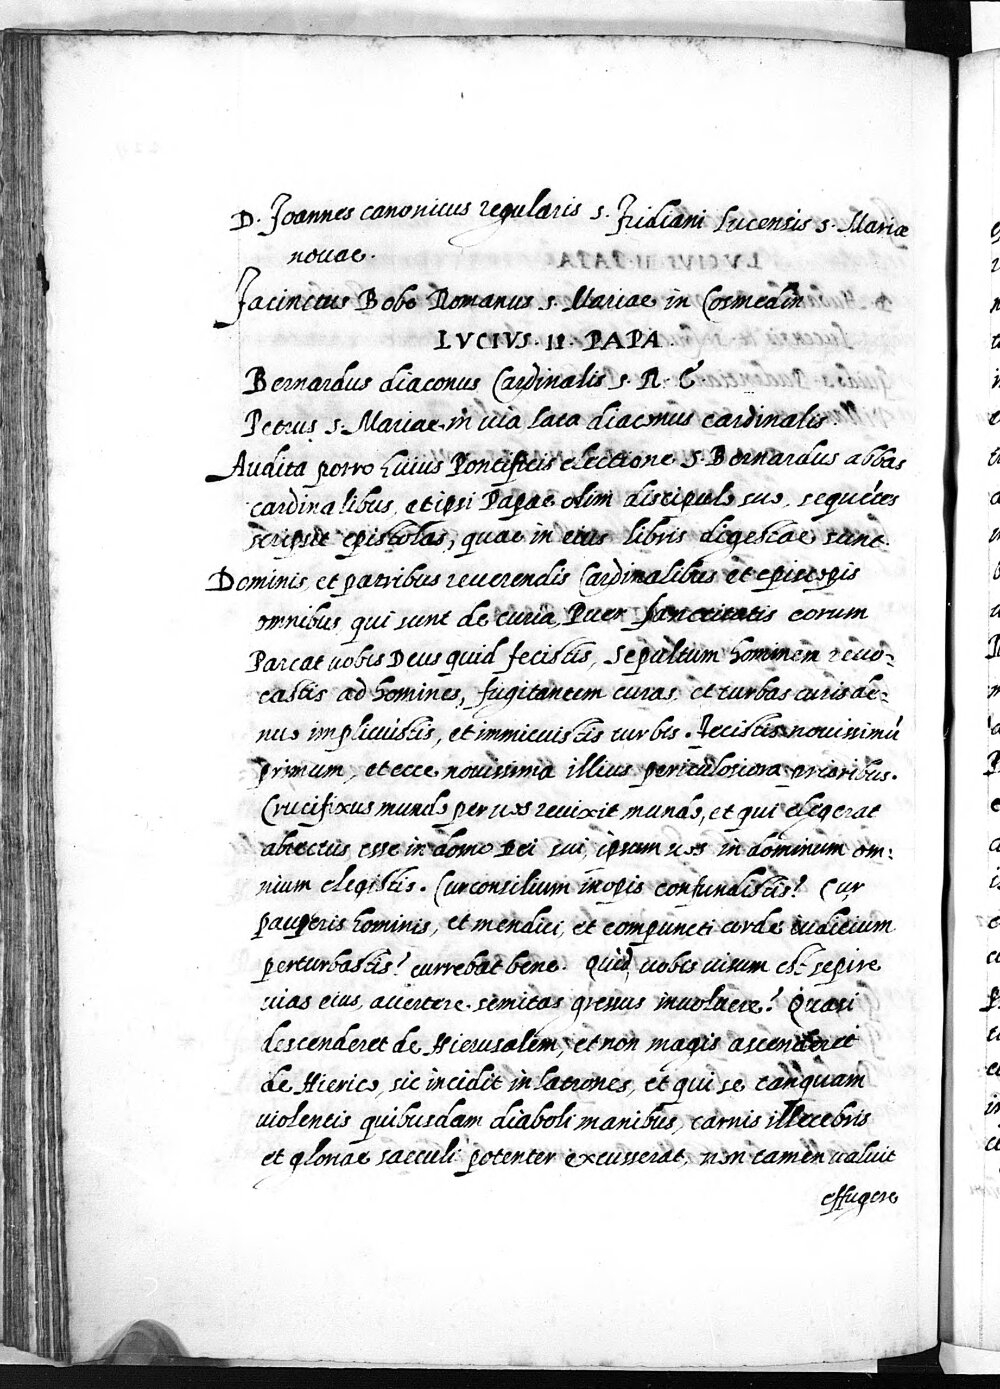 D. Joannes canonicus regularis s. Fridiani Lucensis s. Mariae
nouae.
Jacinctus Bobo Romanus s. Mariae in Cosmedin
LVCIVS. II. PAPA
Bernardus diaconus Cardinalis s. R. E.
Petrus s. Mariae in uia lata diaconus cardinalis.
Audita porro huius Pontificis electione S. Bernardus abbas
cardinalibus, et ipsi Papae olim discipulo suo, sequẽtes
scripsit epistolas, quae in eius libris digestae sunt.
Dominis et patribus reuerendis Cardinalibus et episcopis
omnibus qui sunt de curia, Puer sanctitatis eorum
Parcat uobis Deus quid fecistis, sepultum hominem reuo-
castis ad homines, fugitantem curas et turbas curis de-
nuo implicuistis, et immicuistis turbis. Fecistis nouissimũ
primum, et ecce nouissima illius periculosiora prioribus.
Crucifixus mundo per uos reuixit mundo, et qui elegerat
abiectus esse in domo Dei sui, ipsum uos in dominum om-
nium elegistis. Cur consilium inopis confundistis? Cur
pauperis hominis, et mendici, et compuncti corde iudicium
perturbastis? currebat bene. Quid uobis uisum est sepire
uias eius, auertere semitas gressus inuoluere? Quasi
descenderet de Hierusalem, et non magis ascenderet
de Hierico, sic incidit in latrones, et qui se tanquam
violentis quibusdam diaboli manibus, carnis illecebris
et gloriae saeculi potenter excusserat, non tamen ualuit
effugere